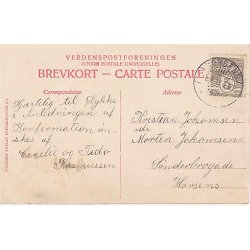 VERDENSPOSTFORENINGEN
(UNION POSTALE UNIVERSELLE)
BREVKORT - CARTE POSTALE
Correspondance
Adresse
Hjertelig til Lykke
i Anledningen af
Konfirmation ön-
skes af
Cecilie og Tado
Rasmussen
Kristian Johannsen
adr
Morten Johannsen
Sönderbrogade
Horsens
5